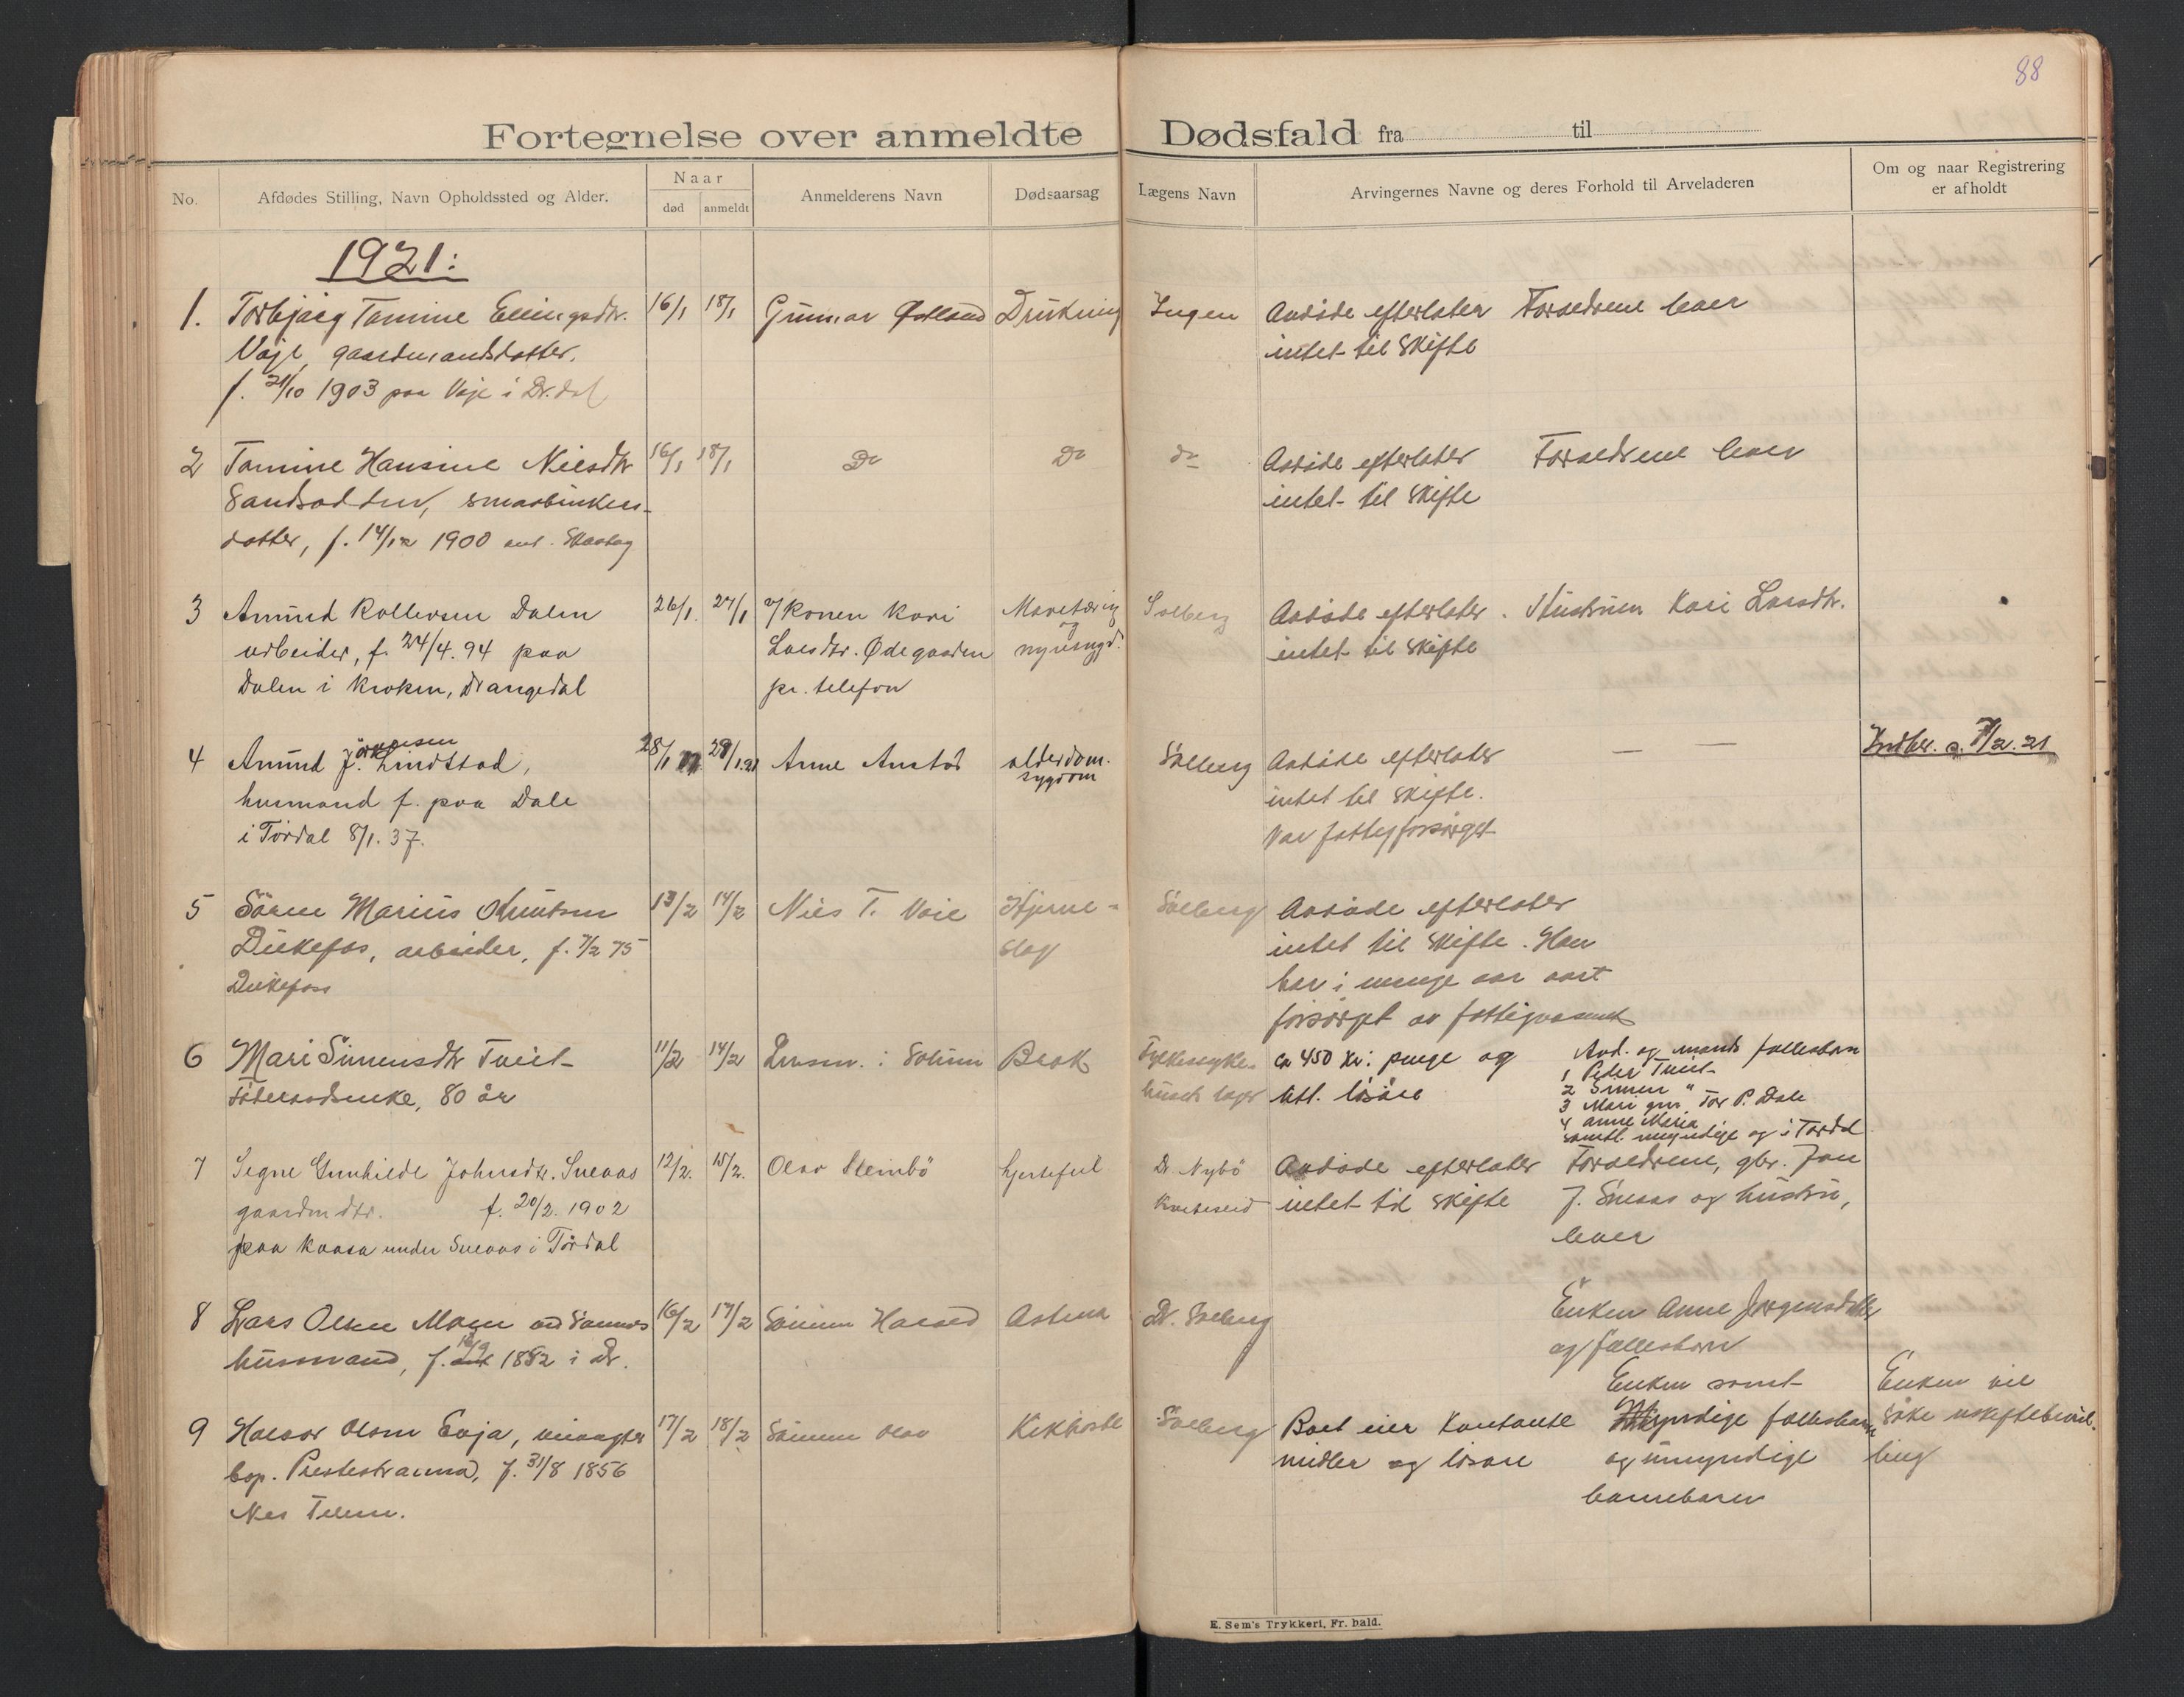 88
Fortegnelse over anmeldte Dødsfald fra til
No.
Afdødes Stilling, Navn Opholdssted og Alder.
Naar
død
anmeldt
Anmelderens Navn
Dødsaarsag
Lægens Navn
Arvingernes Navne og deres Forhold til Arveladeren
Om og naar Registrering
er afholdt
1921:
1. Torbjørg Tomine Ellingsdtr. 16/1 18/1 Gunnar Østland Drukning Ingen Avdøde efterlater Forældrene lever
Voje, gaardmandsdatter. intet til skifte
f. 21/10 1903 paa Voje i Dr.dal
2 Tomine Hansine Nilsdtr 16/1 18/1 Do Do do Avdøde efterlater Forældrene lever
Sandsodden, smaabrukers- intet til skifte
datter, f. 14/12 1900
3 Amund Rollevsen Dalen 26/1. 27/1 v/ konen Kari Mavetæring Solberg Avdøde efterlater. Hustruen Kari Larsdtr.
arbeider, f. 24/4. 94 paa Larsdtr. Ødegaarden og nyresygd. intet til skifte
Dalen i Kroken, Drangedal pr. telefon
4 Amund Jørgensen Lindstad, 28/1 29/1.21 Anne Austad alderdom. Solberg Avdøde efterlater — — Indber. s. 7/2. 21
sygdom
husmand f. paa Dale intet til skifte.
i Tørdal 8/1. 37. Var fattigforsørget
5 Søren Marius Knutsen 13/2 14/2 Nils T. Voie Hjerne- Solberg Avdøde efterlater
Dükefos, arbeider, f. 7/2 75 slag intet til skifte. Han
Dükefoss har i mange aar vært
forsørget av fattigvæsenet
6 Mari Simensdtr Tveit 11/2 14/2 Lensm. i Solum Brok Fylkessyke- ca 450 kr. i penge og Avd. og mands fællesbarn
1 Peder Tveit
føderaadsenke, 80 år husets læge litt løsøre 2 Simen "
3 Mari gm. Tor P. Dale
4 Anne Maria
samtl. myndige og i Tørdal
7 Signe Gunhilde Johnsdtr. Sneaas 12/2. 15/2. Olav Stembö hjertefeil Dr. Nybö Avdøde efterlater Forældrene, gbr. Jon
gaardmdtr. f. 20/2. 1902 Kviteseid intet til skifte J. Sneaas og hustru,
paa Kaasa under Sneaas i Tørdal lever
8 Lars Olsen Moen 16/2 17/2 Halvord Astma Dr. Solberg Enken Anne Jørgensdatter
husmand, f. 18/9 1852 i Dr. og fællesbarn
Enken samt Enken vil
9 Halvor Olsen Evja, 17/2 18/2 Olav Solberg Boet eier kontante myndige fællesbarn søke uskiftebevil-
bop. Prestestranna, f. 31/8 1856 midler og løsøre og umyndige ling
Nes Telem. barnebarn
E. Sem's Trykkeri, Fr.hald.